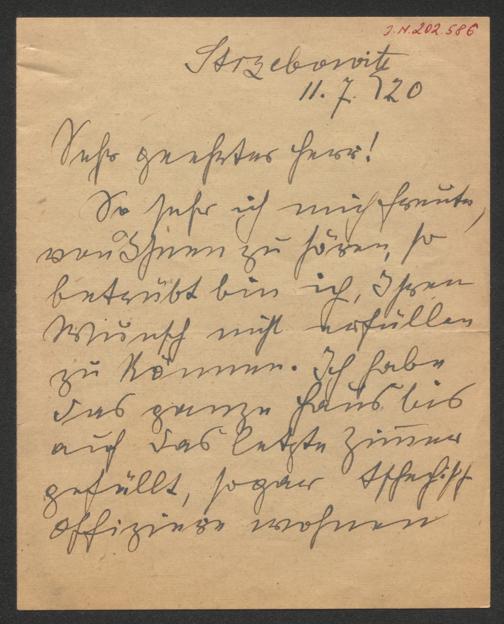 J.N. 202.586
Strzebowitz
11. 7. 920
Sehr geehrter Herr!
So sehr ich mich freute,
von Ihnen zu hören, so
betrübt bin ich, Ihren
Wunsch nicht erfüllen
zu können. Ich habe
das ganze Haus bis
auf das letzte Zimmer
gefüllt, sogar tschechisch
Offiziere wohnen